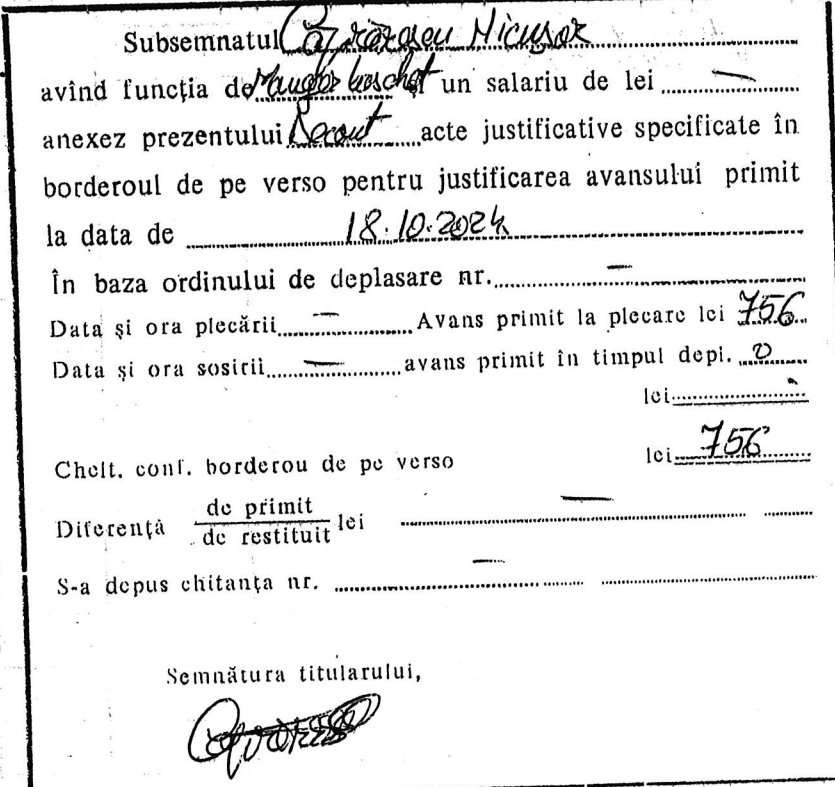 Subsemnatul Căzănescu Nicușor
avînd funcția de baschet un salariu de lei —
anexez prezentului Decont acte justificative specificate în
borderoul de pe verso pentru justificarea avansului primit
la data de 18.10.2024
În baza ordinului de deplasare nr. —
Data și ora plecării — Avans primit la plecare lei 756
Data și ora sosirii — avans primit în timpul depl. 0
lei
Chelt. conf. borderou de pe verso lei 756
Diferență de primit
de restituit lei —
S-a depus chitanța nr. —
Semnătura titularului,